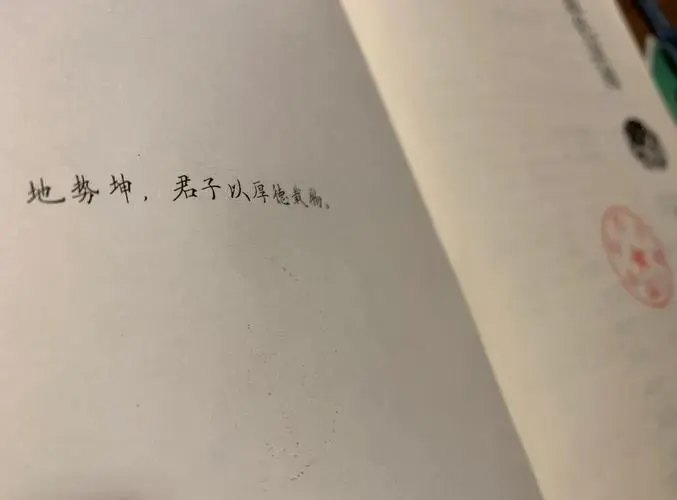 地势坤，君子以厚德载物。